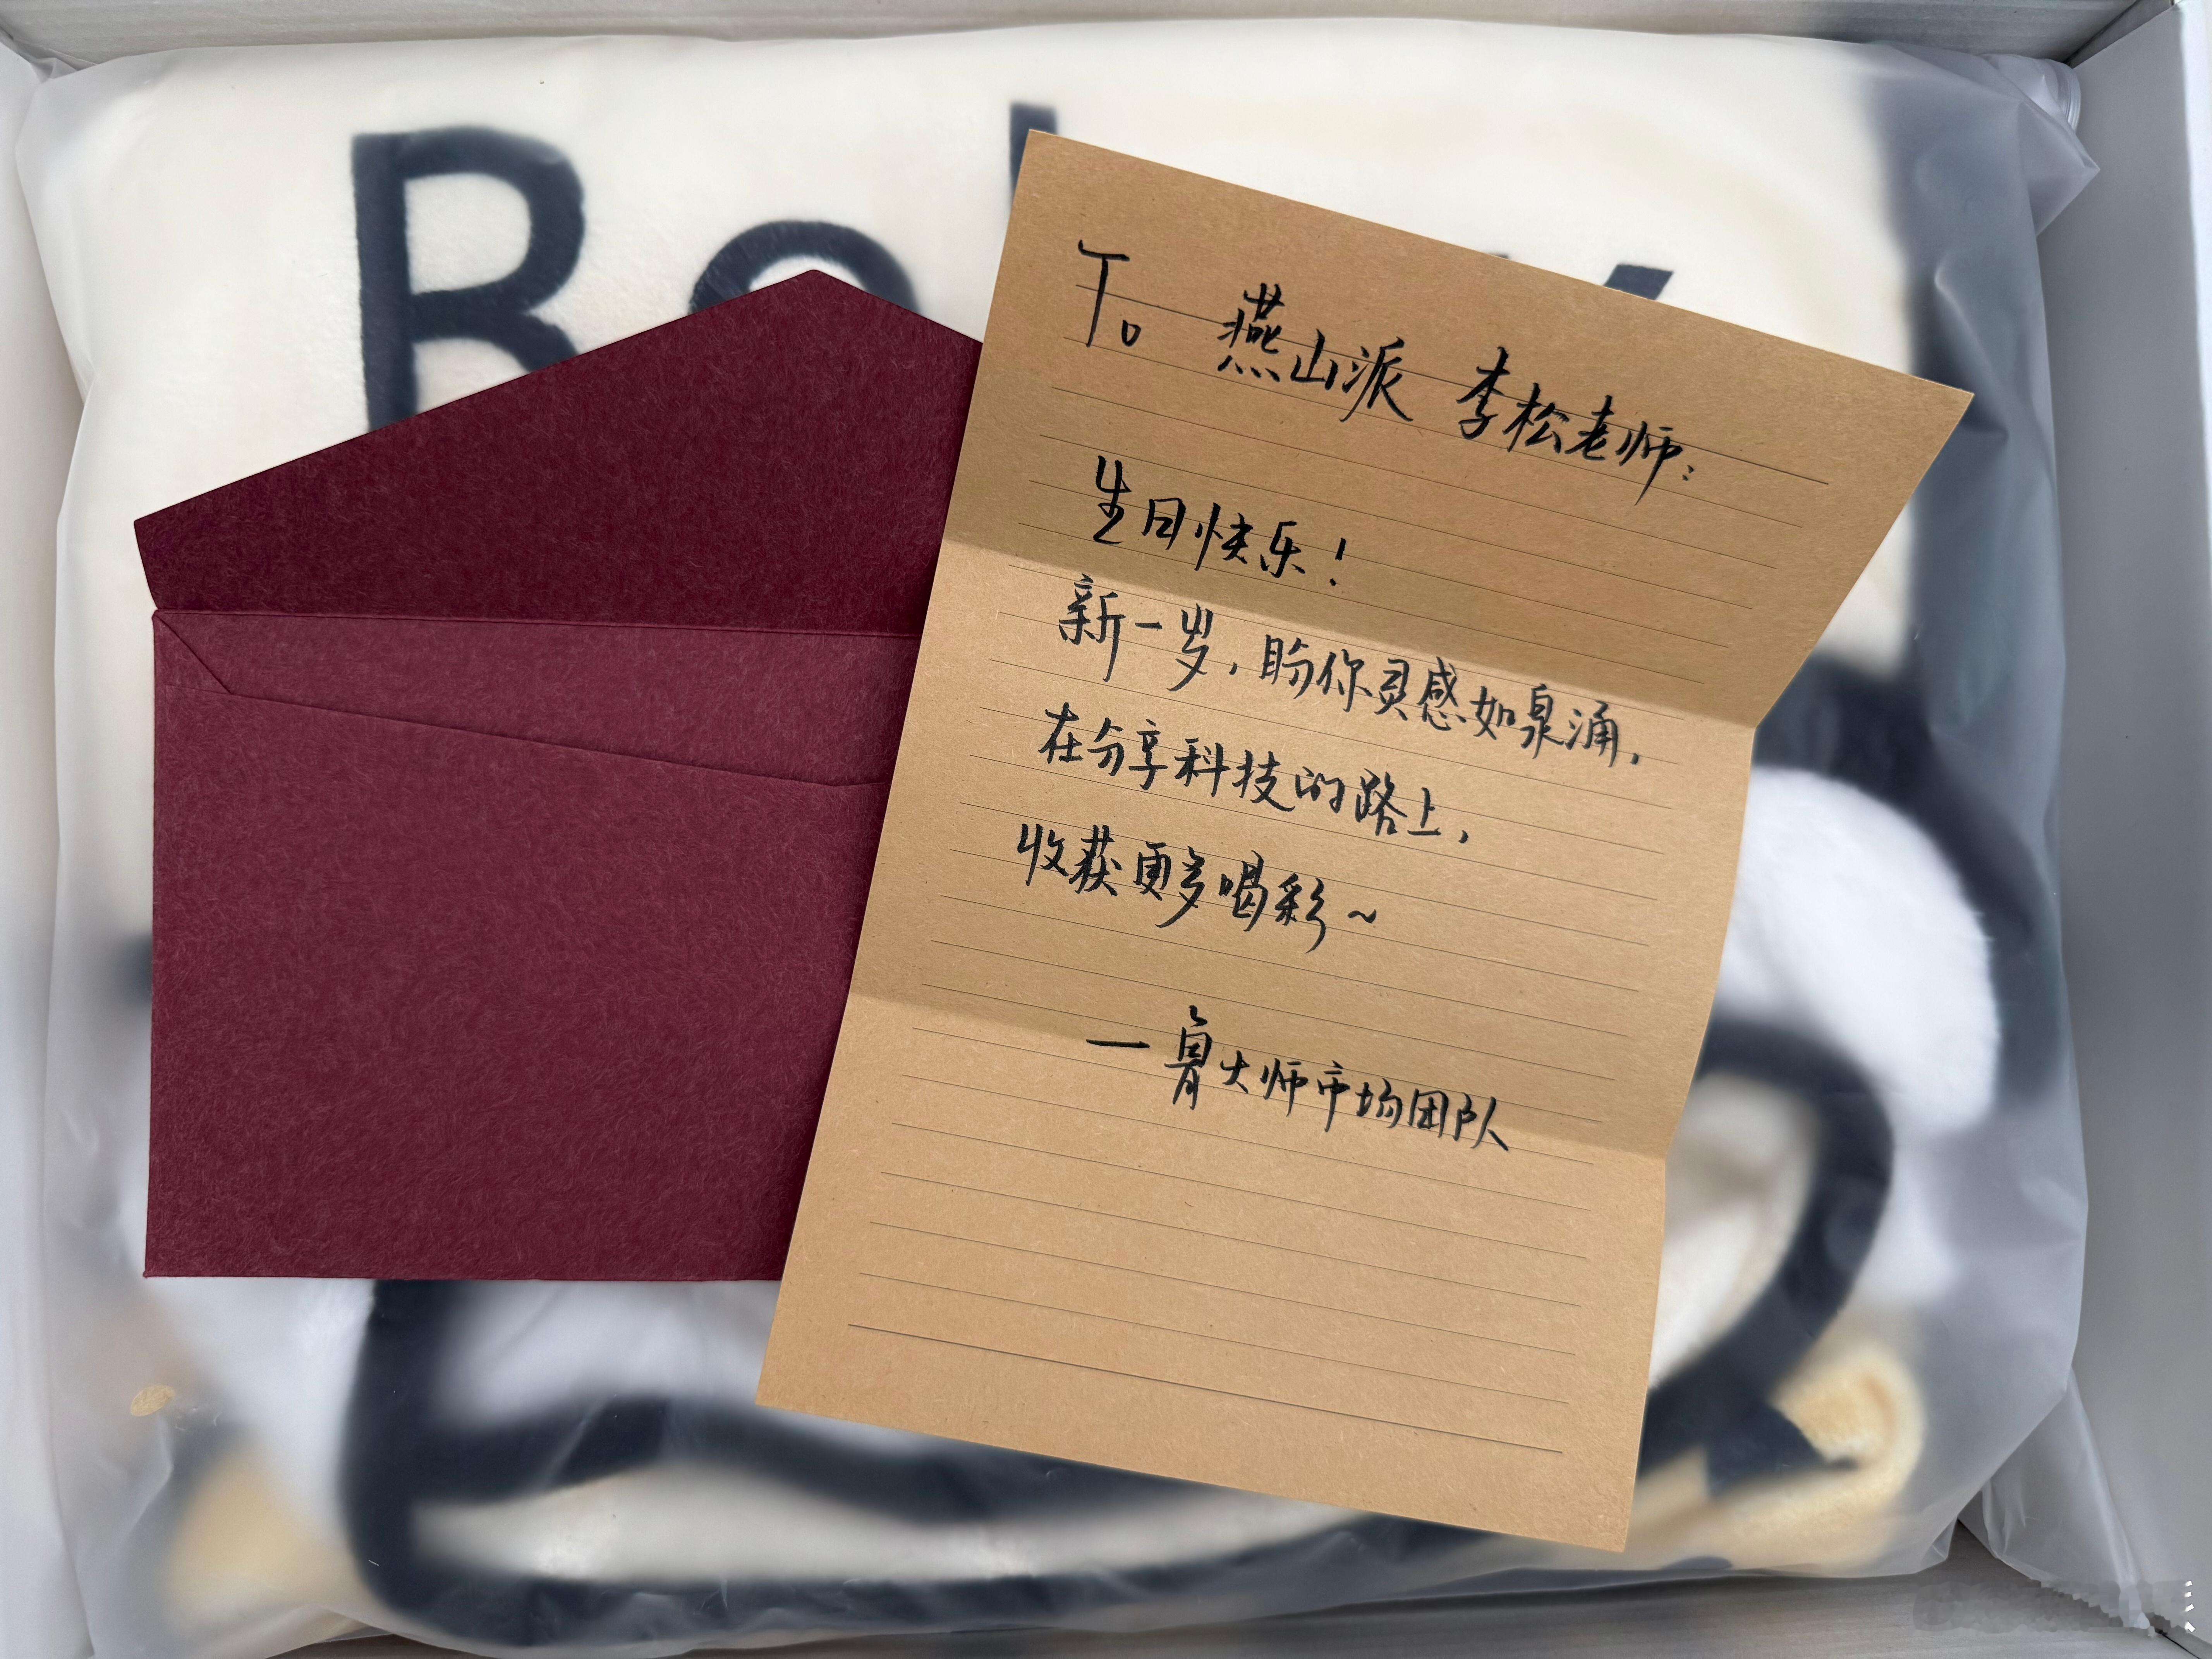 To 燕山派 李松老师:
生日快乐!
新一岁,盼你灵感如泉涌,
在分享科技的路上,
收获更多喝彩~
—鲁大师市场团队